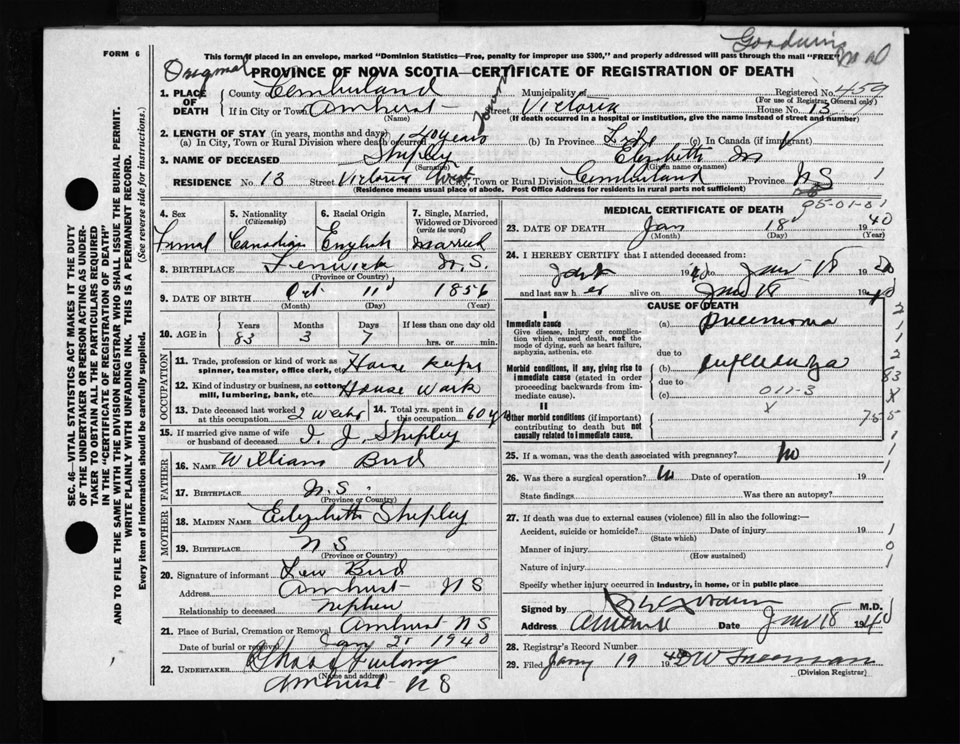 FORM 6
Goodwin
M D
This form if placed in an envelope, marked "Dominion Statistics—Free, penalty for improper use $300," and properly addressed will pass through the mail "FREE"
Original
PROVINCE OF NOVA SCOTIA—CERTIFICATE OF REGISTRATION OF DEATH
1. PLACE OF DEATH County of Cumberland Municipality of Registered No. 459
(For use of Registrar General only)
If in City or Town Amherst Street Victoria House No. 13
(Name) (If death occurred in a hospital or institution, give the name instead of street and number)
2. LENGTH OF STAY (in years, months and days)
(a) In City, Town or Rural Division where death occurred 40 years (b) In Province Life (c) In Canada (if immigrant)
3. NAME OF DECEASED Shipley Elizabeth M
(Surname) (Given name or names)
RESIDENCE No. 13 Street Victoria West City, Town or Rural Division Cumberland Province N S 1
(Residence means usual place of abode. Post Office Address for residents in rural parts not sufficient)
95-01-01
SEC. 46—VITAL STATISTICS ACT MAKES IT THE DUTY
OF THE UNDERTAKER OR PERSON ACTING AS UNDER-
TAKER TO OBTAIN ALL THE PARTICULARS REQUIRED
IN THE "CERTIFICATE OF REGISTRATION OF DEATH"
AND TO FILE THE SAME WITH THE DIVISION REGISTRAR WHO SHALL ISSUE THE BURIAL PERMIT.
WRITE PLAINLY WITH UNFADING INK. THIS IS A PERMANENT RECORD.
Every item of information should be carefully supplied. (See reverse side for instructions.)
4. Sex 5. Nationality 6. Racial Origin 7. Single, Married,
(Citizenship) Widowed or Divorced
(write the word)
Femal Canadian English Married
8. BIRTHPLACE Fenwick N.S.
(Province or Country)
9. DATE OF BIRTH Oct 11 1856
(Month) (Day) (Year)
10. AGE in Years Months Days If less than one day old
83 3 7 hrs. or min.
OCCUPATION
11. Trade, profession or kind of work as
spinner, teamster, office clerk, etc. House keeper
12. Kind of industry or business, as cotton
mill, lumbering, bank, etc. House Work
13. Date deceased last worked
at this occupation 2 Weeks 14. Total yrs. spent in
this occupation 60 yrs
15. If married give name of wife
or husband of deceased I. J. Shipley
FATHER
16. NAME William Bird
17. BIRTHPLACE N.S.
(Province or Country)
MOTHER
18. MAIDEN NAME Elizabeth Shipley
19. BIRTHPLACE N S
(Province or Country)
20. Signature of informant Lew Bird
Address Amherst N S
Relationship to deceased nephew
21. Place of Burial, Cremation or Removal Amherst N S
Date of burial or removal Jany 21 1940
22. UNDERTAKER Furlong
(Name and address)
Amherst N S
MEDICAL CERTIFICATE OF DEATH
23. DATE OF DEATH Jan 18 1940
(Month) (Day) (Year)
24. I HEREBY CERTIFY that I attended deceased from:
1940 to Jan 18 1940
and last saw her alive on Jan 18 1940
CAUSE OF DEATH
I
Immediate cause
Give disease, injury or complication
which caused death, not the
mode of dying, such as heart failure,
asphyxia, asthenia, etc
(a) Pneumonia
due to
Morbid conditions, if any, giving rise to
immediate cause (stated in order
proceeding backwards from immediate
cause).
(b) Influenza
due to
(c) 011-3
X
II
Other morbid conditions (if important)
contributing to death but not
causally related to immediate cause.
2
1
1
2
83
X
755
1
1
1
25. If a woman, was the death associated with pregnancy? No
26. Was there a surgical operation? No Date of operation 19
State findings Was there an autopsy?
27. If death was due to external causes (violence) fill in also the following:—
Accident, suicide or homicide? Date of injury 19 1
(State which)
Manner of injury 0
(How sustained)
Nature of injury 1
Specify whether injury occurred in industry, in home, or in public place
Signed by M.D.
Address Amherst Date Jan 18 1940
28. Registrar's Record Number
29. Filed Jany 19 1940 D W Freeman
(Division Registrar)